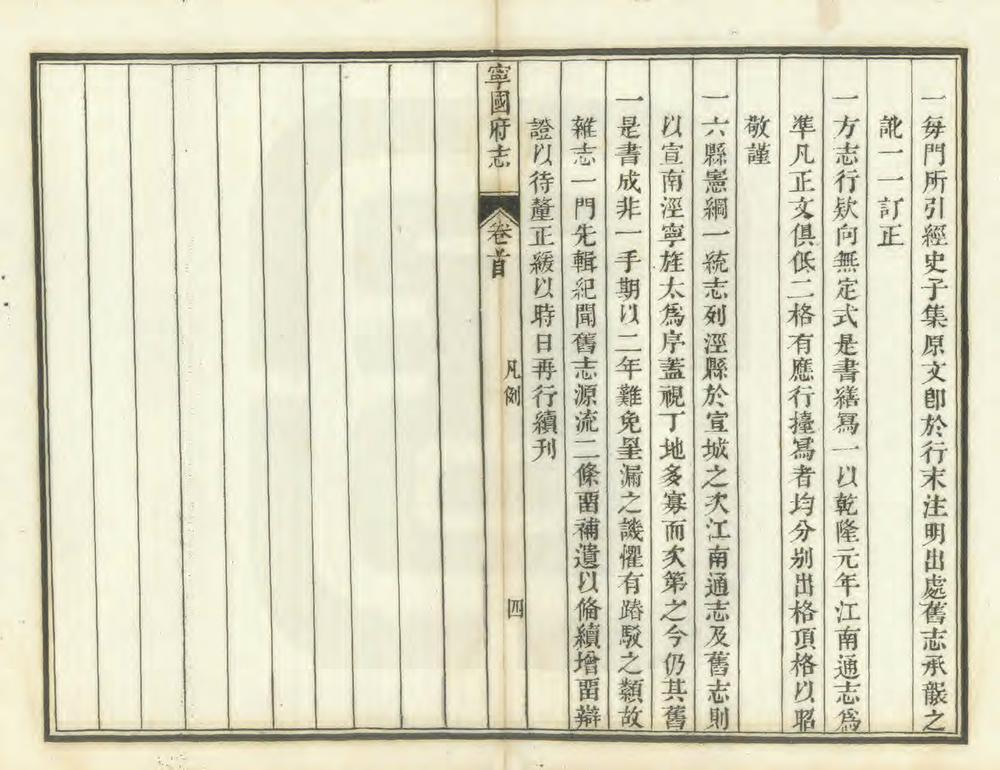 一每門所引經史子集原文卽於行末注明出處舊志承襲之
訛一一訂正
一方志行欵向無定式是書繕寫一以乾隆元年江南通志爲
準凡正文俱低二格有應行擡寫者均分別出格頂格以昭
敬謹
一六縣憲綱一統志列涇縣於宣城之次江南通志及舊志則
以宣南涇寧旌太爲序蓋視丁地多寡而次第之今仍其舊
一是書成非一手期以二年難免罣漏之譏懼有踳駁之纇故
雜志一門先輯紀聞舊志源流二條畱補遺以偹續增畱辯
證以待釐正緩以時日再行續刊
寧國府志
卷首
凡例
四